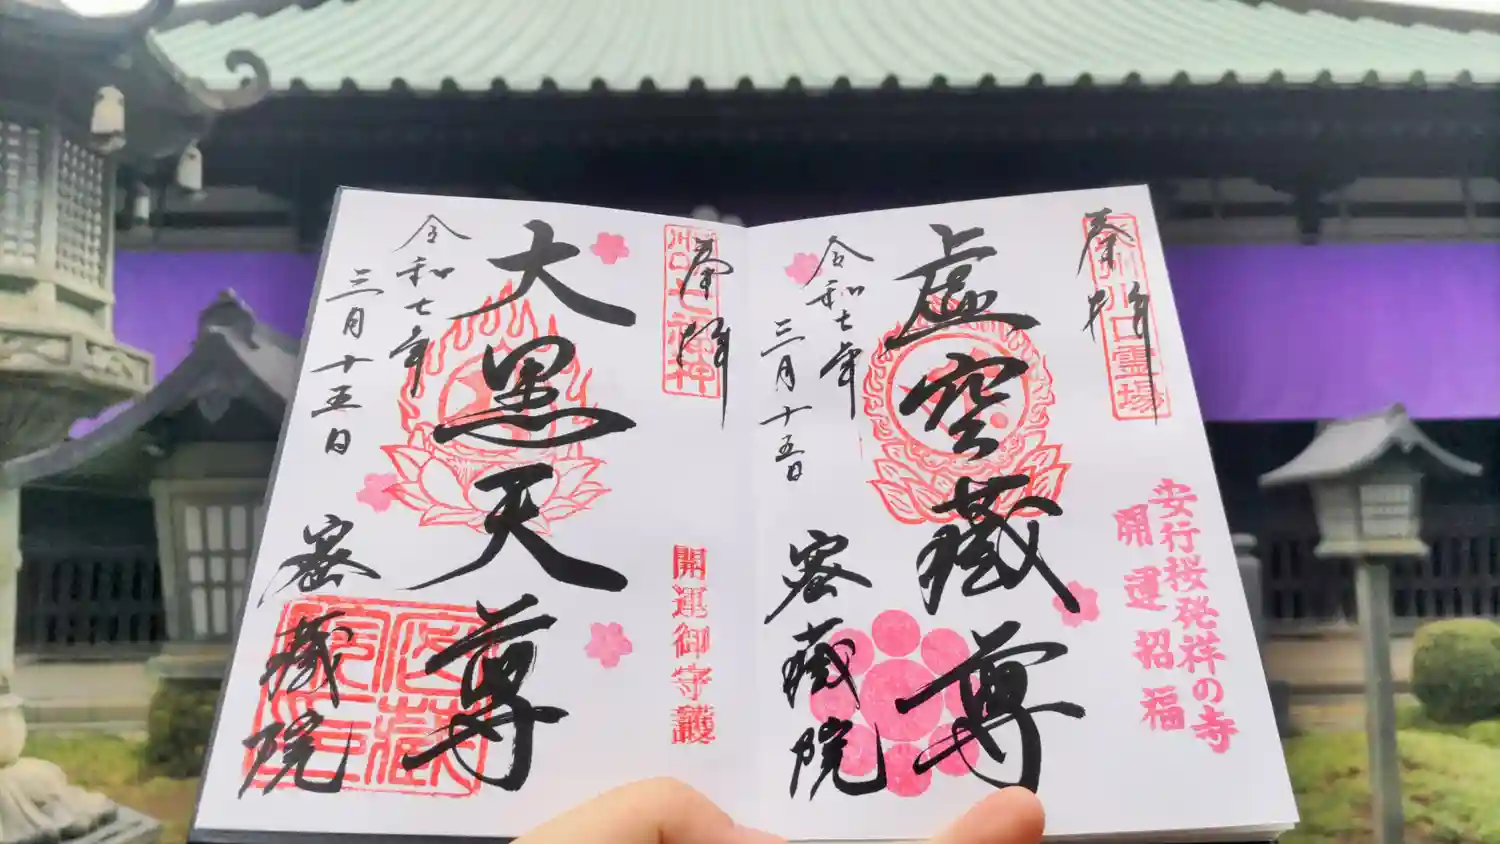 奉拝
虚空蔵尊
令和七年
三月十五日
密蔵院
安行桜発祥の寺
開運招福
川口霊場
奉拝
大黒天尊
令和七年
三月十五日
密蔵院
開運御守護
川口七福神